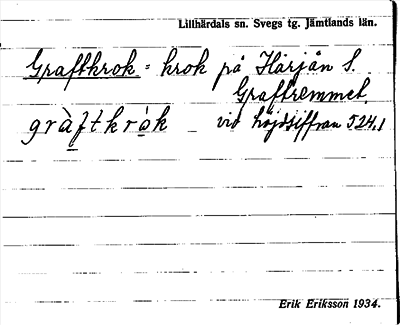 Lillhärdals sn. Svegs tg. Jämtlands län.
Graftkrok = krok på Härjån S.
Graftremmet,
gràftkròk vid höjdsiffran 524,1
Erik Eriksson 1934.